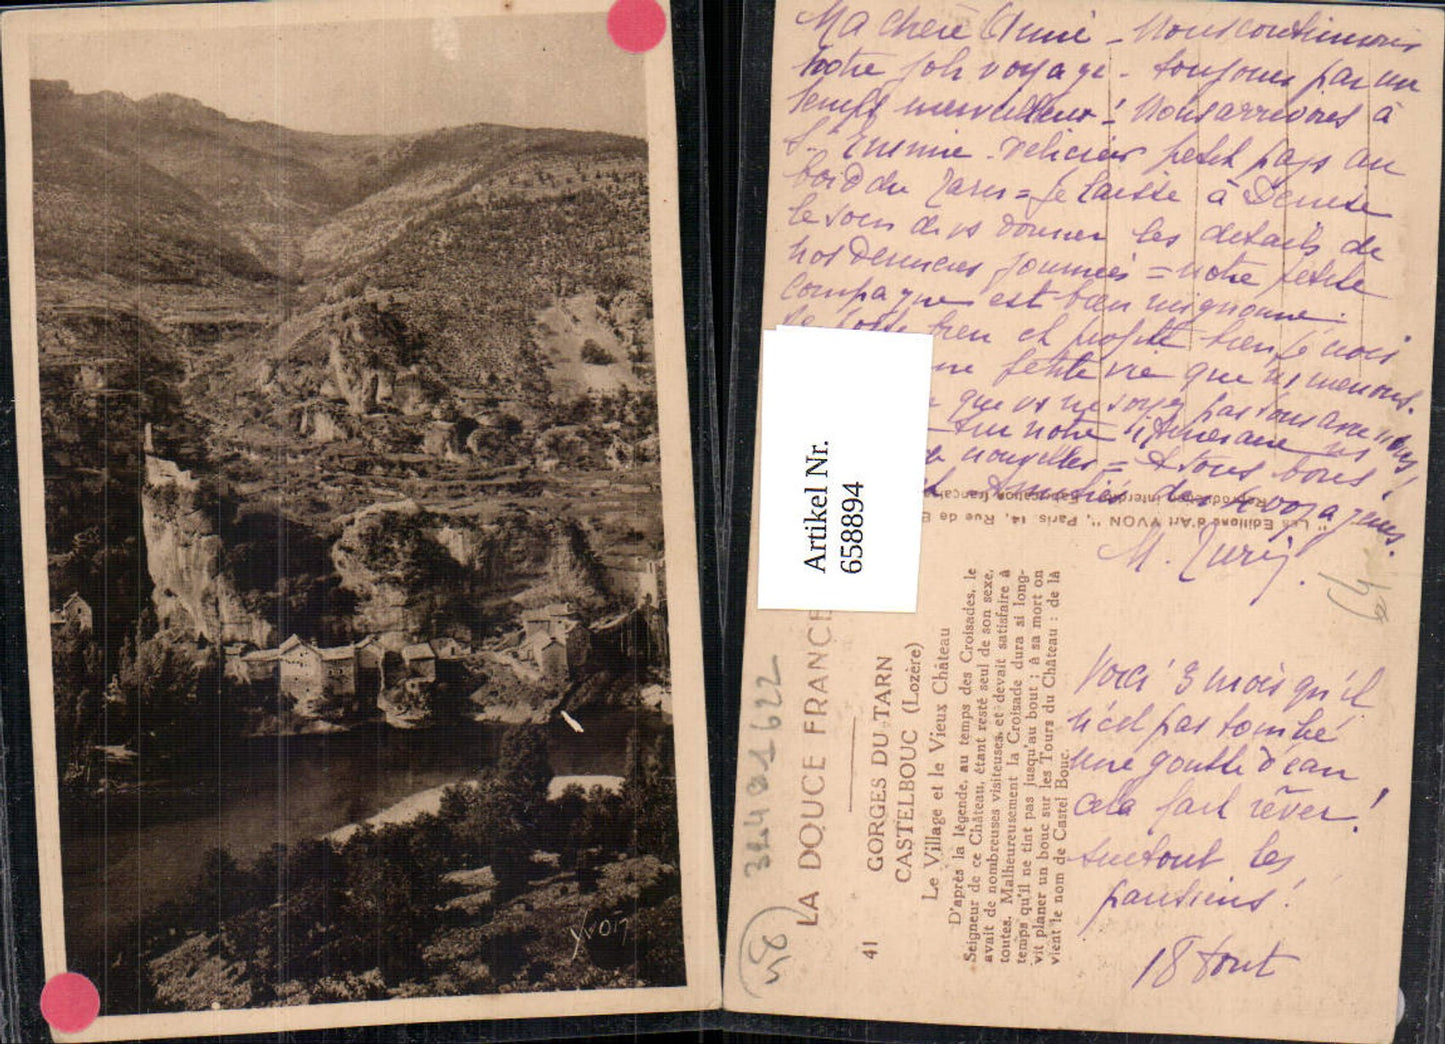 Yvon
Ma chère Aimée - Nous continuons
notre joli voyage - toujours par un
temps merveilleux! Nous arrivons à
St Enimie - délicieux petit pays au
bord du Tarn = Je laisse à Denise
le soin de vs donner les détails de
nos dernières journées = notre petite
compagne est bien mignonne.
bien et profite bien je crois
petite vie que ns menons.
que vs ne soyez pas sans avec
sur notre itinéraire ns
nouvelles = A tous bons
Amitiés des voyageurs.
M.
Voici 3 mois qu'il
n'est pas tombé
une goutte d'eau
cela fait rêver!
surtout les
parisiens!
18 Aout
Artikel Nr.
658894
LA DOUCE FRANCE
41
GORGES DU TARN
CASTELBOUC (Lozère)
Le Village et le Vieux Château
D'après la légende, au temps des Croisades, le
Seigneur de ce Château, étant resté seul de son sexe,
avait de nombreuses visiteuses, et devait satisfaire à
toutes. Malheureusement la Croisade dura si long-
temps qu'il ne tint pas jusqu'au bout ; à sa mort on
vit planer un bouc sur les Tours du Château : de là
vient le nom de Castel Bouc.
" Les Editions d'Art YVON ", Paris, 14, Rue de
Reproduction interdite Fabrication français